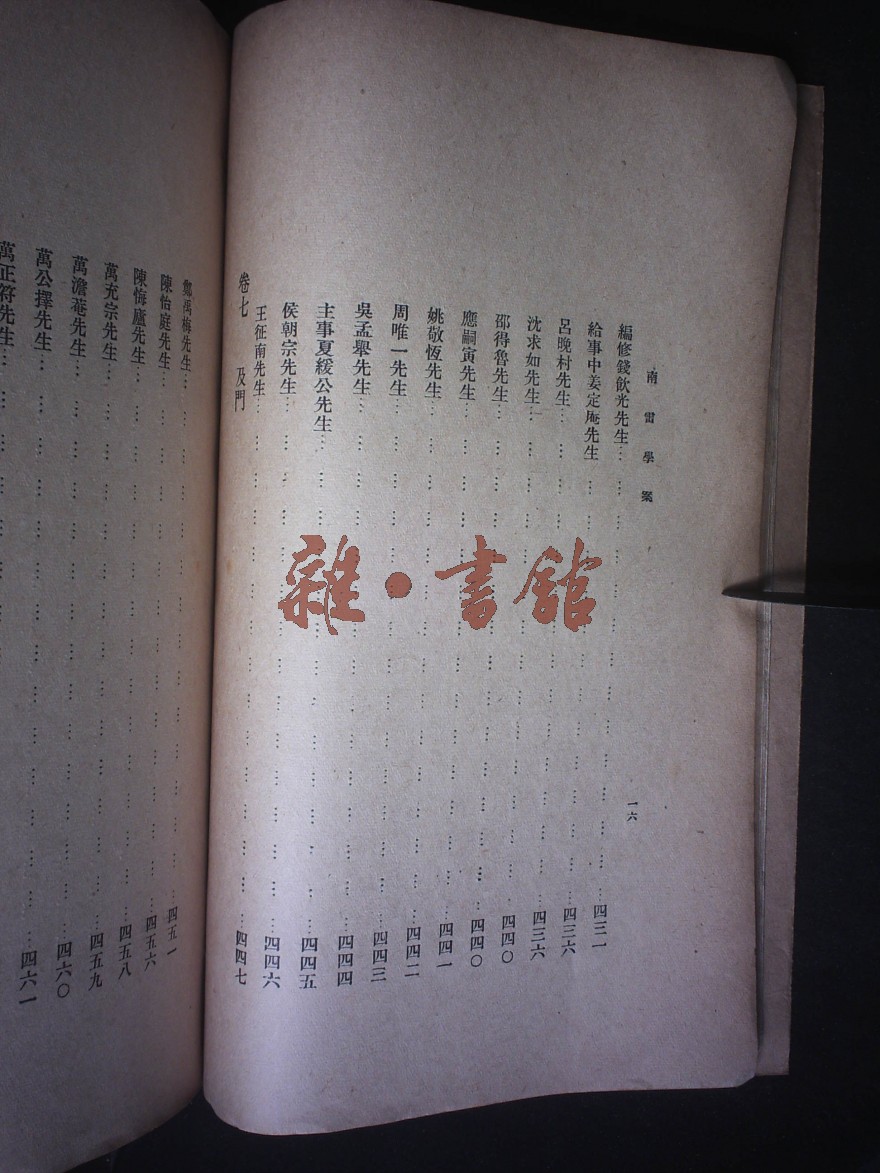 南雷學案
一六
編修錢飲光先生……四三一
給事中姜定庵先生……四三六
呂晚村先生……四三六
沈求如先生……四四〇
邵得魯先生……四四〇
應嗣寅先生……四四一
姚敬恆先生……四四二
周唯一先生……四四三
吳孟舉先生……四四四
主事夏緩公先生……四四五
侯朝宗先生……四四六
王征南先生……四四七
卷七 及門
鄭禹梅先生……四五一
陳怡庭先生……四五六
陳悔廬先生……四五八
萬充宗先生……四五九
萬澹菴先生……四六〇
萬公擇先生……四六一
萬正符先生……
雜·書館